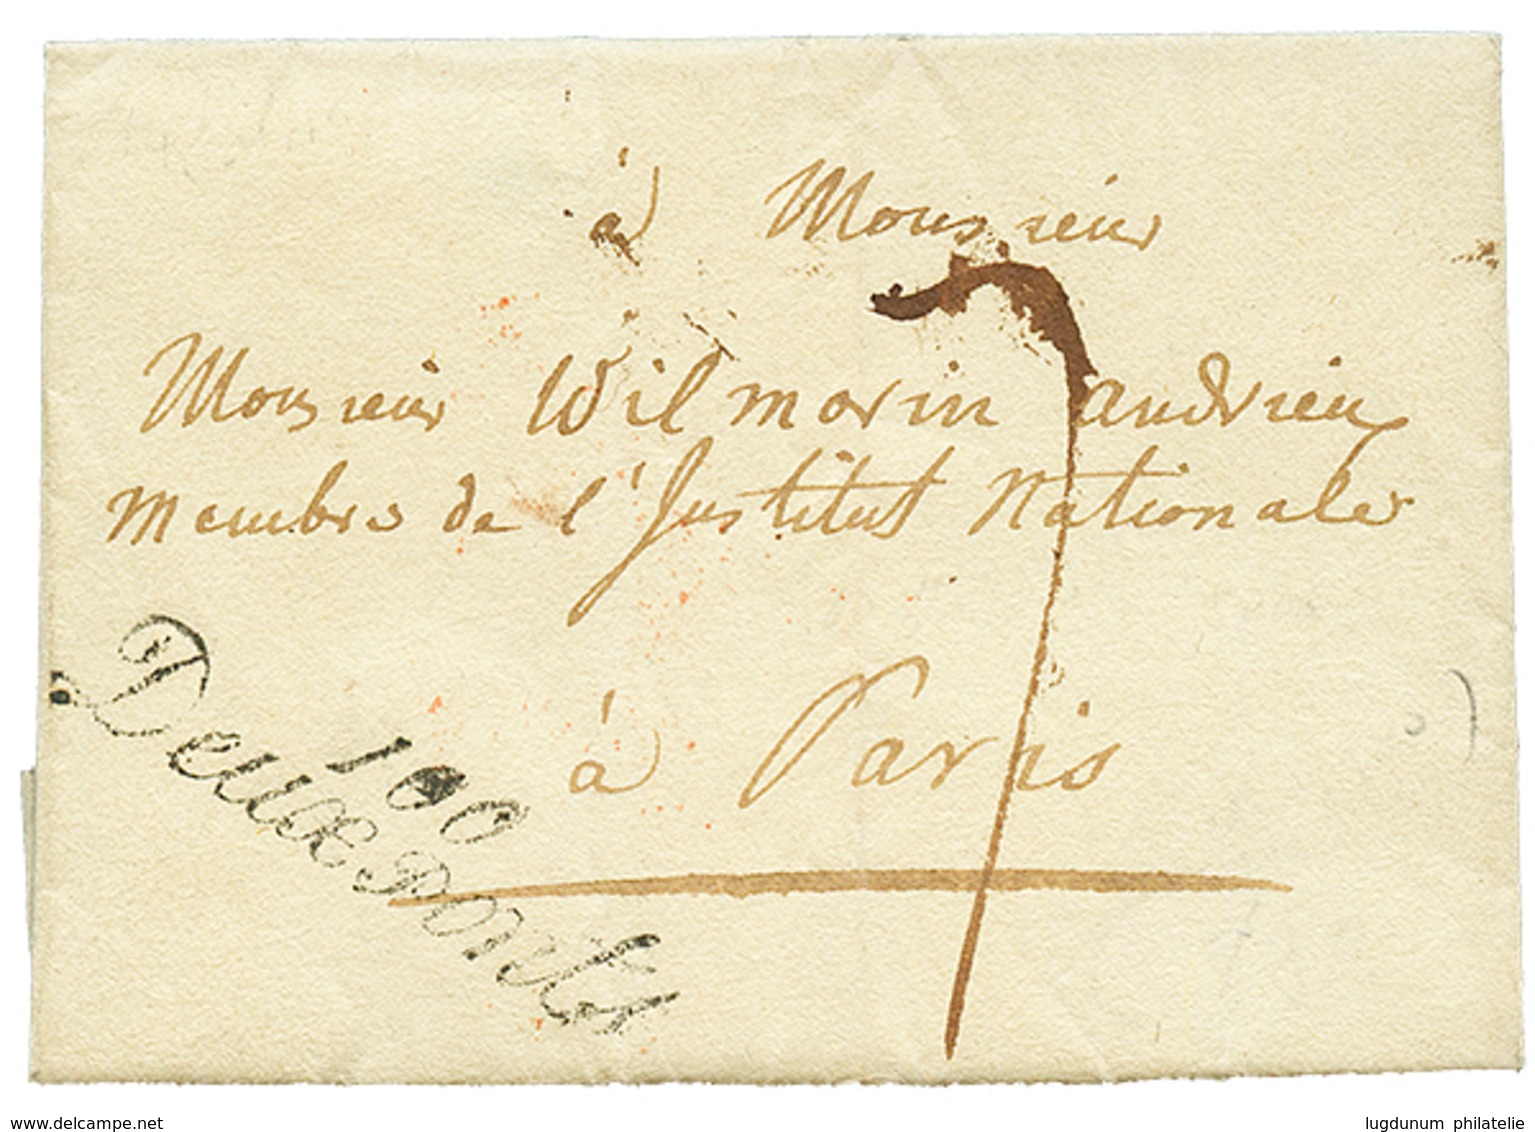 à Monsieur
7
Monsieur Wilmorin andrieu
membre de l'Institut Nationale
à Paris
100
Deux Ponts
www.delcampe.net
lugdunum philatelie